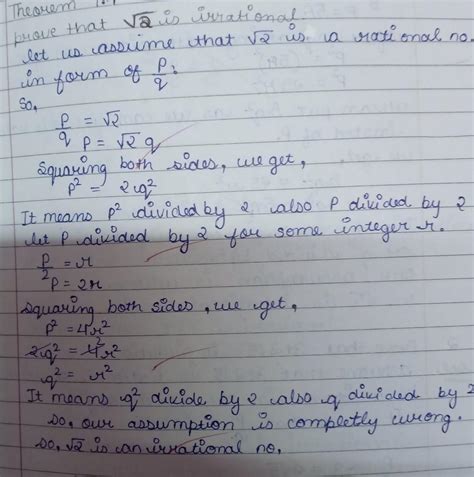 Theorem
prove that √2 is irrational.
let us assume that √2 is a rational no.
in form of p/q:
So,
p/q = √2
p = √2 q
Squaring both sides, we get,
p² = 2q²
It means p² divided by 2 also p divided by 2
let p divided by 2 for some integer r.
p/2 = r
p = 2r
Squaring both sides, we get,
p² = 4r²
2q² = 4r²
q² = r²
It means q² divide by 2 also q divided by 2
So, our assumption is completly wrong.
So, √2 is an irrational no,